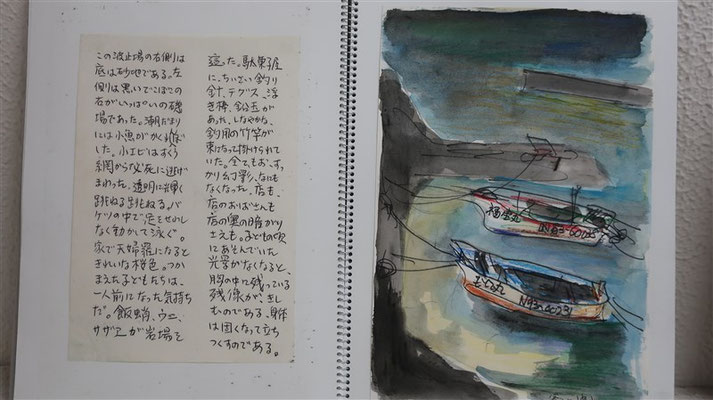 この波止場の右側は
底は砂地である。左
側は黒いでこぼこの
石がいっぱいの磯
場であった。潮だまり
には小魚がかくれ
した。小エビはすくう
網から必死に逃げ
まわった。透明に輝く
跳ねる跳ねる。バ
ケツの中で足をせわし
なく動かして泳ぐ。
家で天婦羅になると
きれいな桜色。つか
まえた子どもたちは、
一人前になった気持ち
だ。飯蛸、ウニ、
サザエが岩場を
這った。駄菓子屋
に、ちいさい釣り
針、テグス、浮
き棒、鉛玉が
あった。しなやかな、
釣り用の竹竿が
束になって掛けられて
いた。全ても、すっ
かり幻影、なにも
なくなった。店も、
店のおばさんも
店の奥の暗がり
さえも。子どもの頃
にあそんでいた
光景がなくなると、
胸の中に残っている
残像が、きし
むのである。身体
は固くなって立ち
つくすのである。
N93-60025
N93-60231